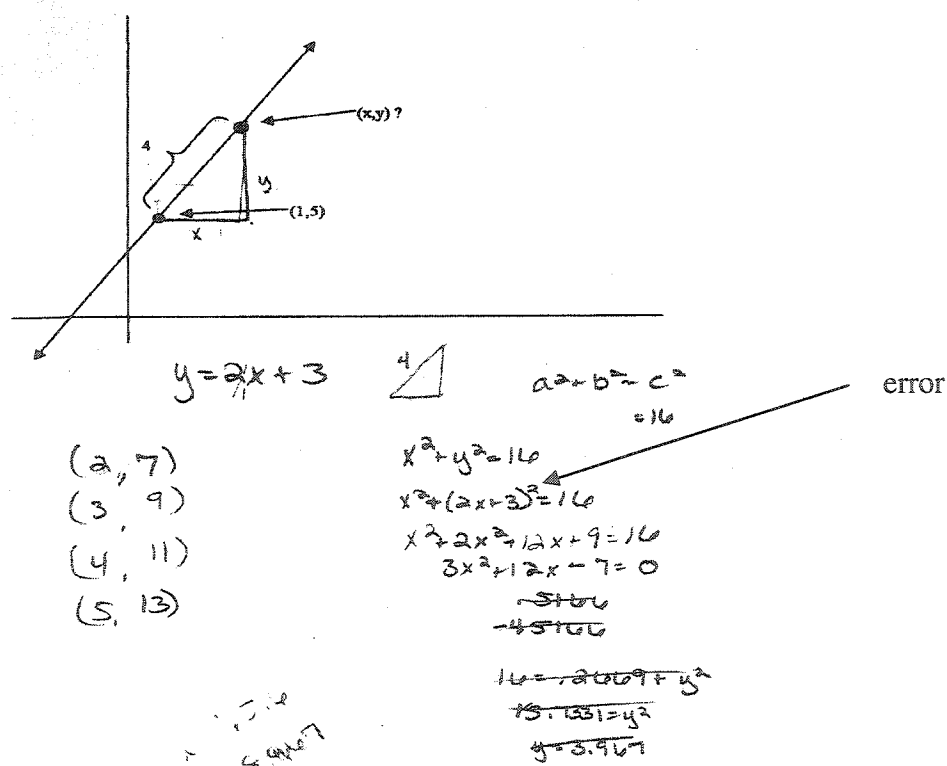 (x,y) ?
4
y
(1,5)
x
y = 2x + 3
4
a² + b² = c²
= 16
error
(2, 7)
(3, 9)
(4, 11)
(5, 13)
x² + y² = 16
x² + (2x + 3)² = 16
x² + 2x² + 12x + 9 = 16
3x² + 12x - 7 = 0
.5166
-4.5166
16 = .2669 + y²
15.7331 = y²
y = 3.967